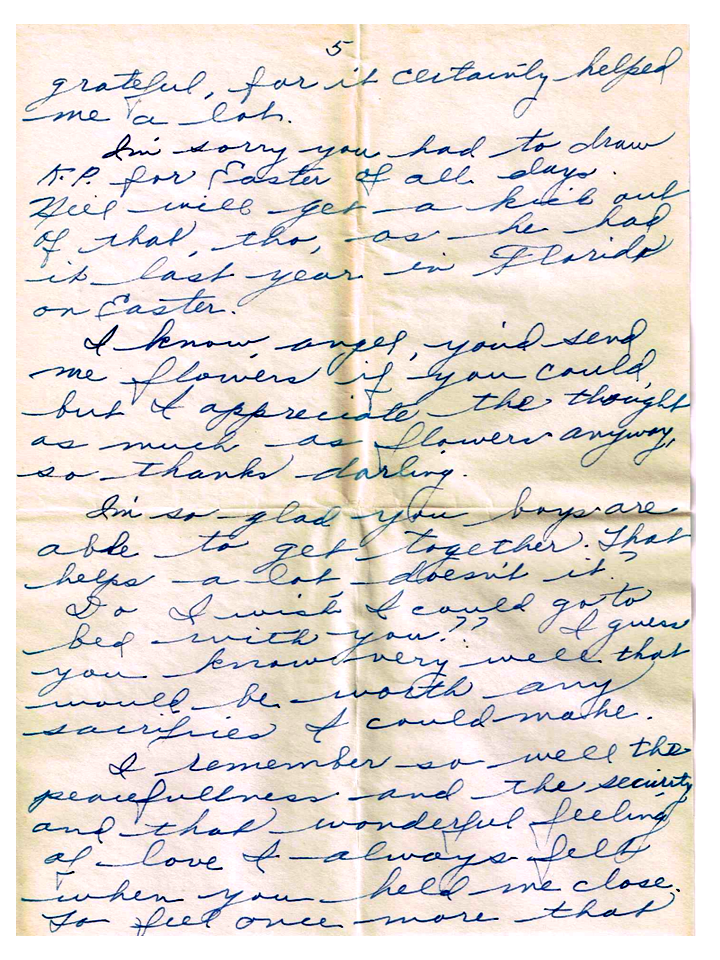 5
grateful, for it certainly helped
me a lot.
I'm sorry you had to draw
K.P. for Easter of all days.
will get a kick out
of that, tho, as he had
it last year in Florida
on Easter.
I know, angel, you'd send
me flowers if you could,
but I appreciate the thought
as much as flowers anyway,
so thanks darling.
I'm so glad you boys are
able to get together. That
helps a lot, doesn't it?
Do I wish I could go to
bed with you?? I guess
you know very well that
would be worth any
sacrifices I could make.
I remember so well the
peacefullness and the security
and that wonderful feeling
of love I always felt
when you held me close.
To feel once more that